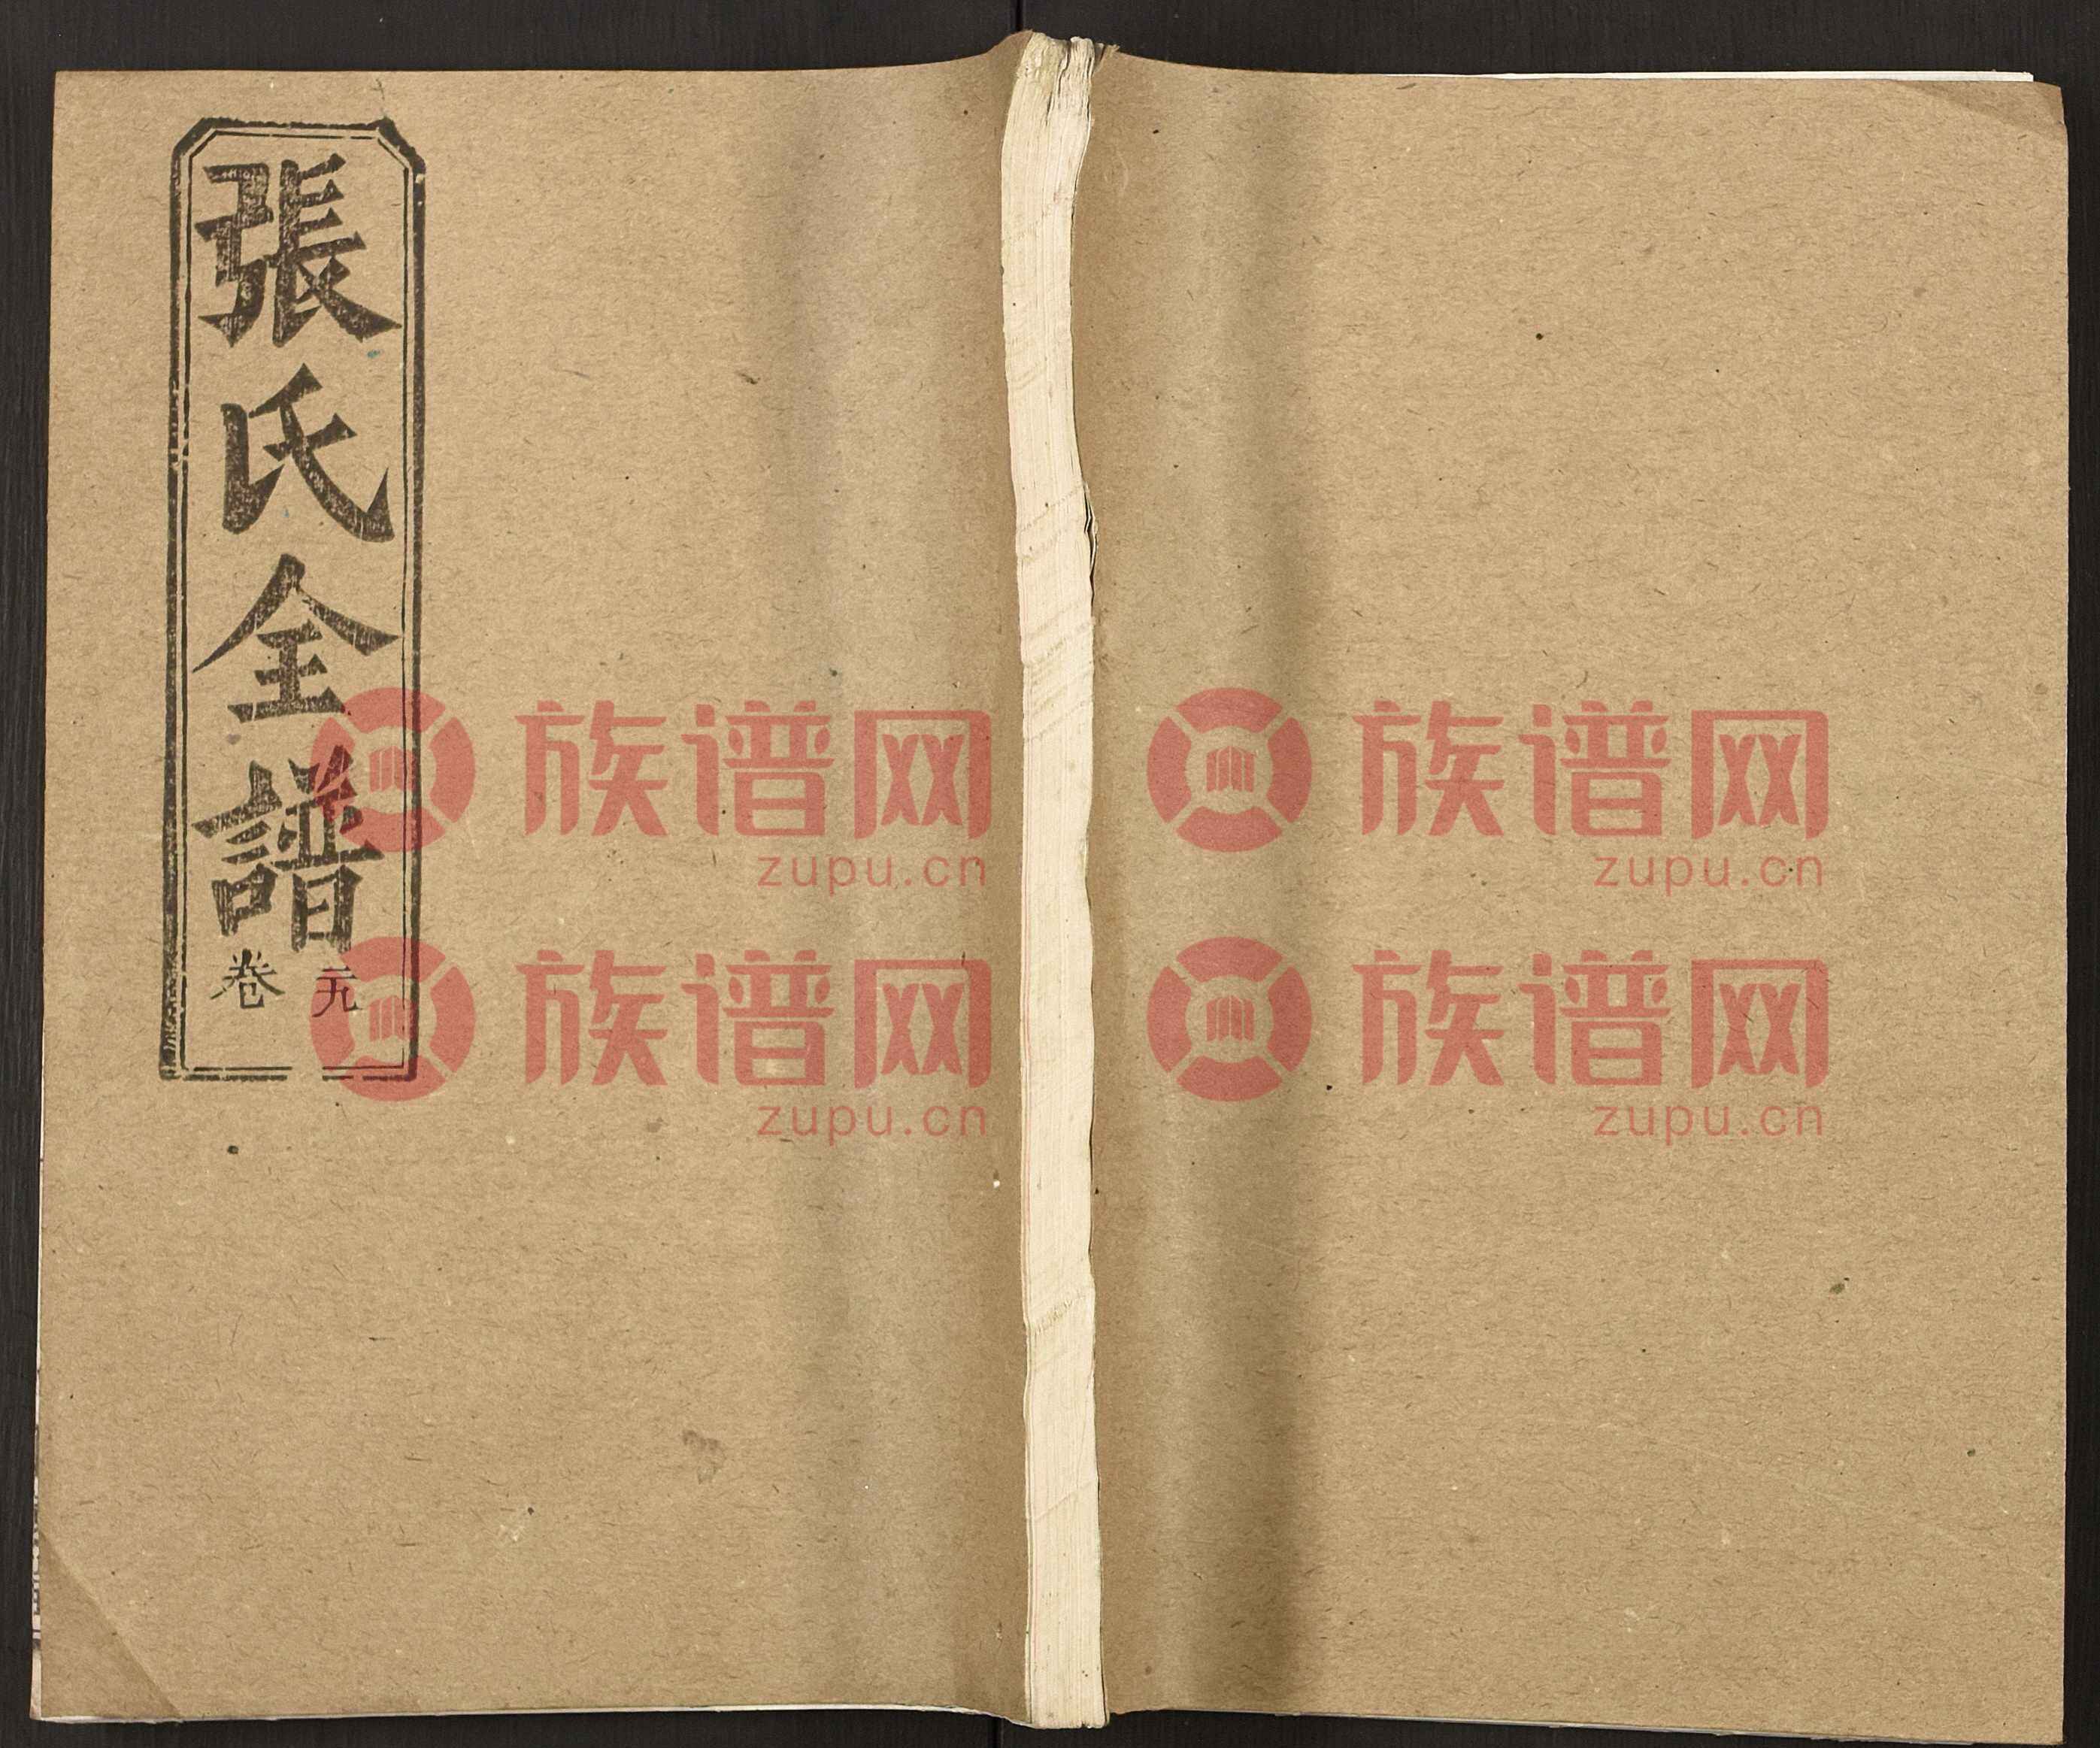 張氏全譜
元卷
族谱网
zupu.cn
族谱网
zupu.cn
族谱网
zupu.cn
族谱网
zupu.cn